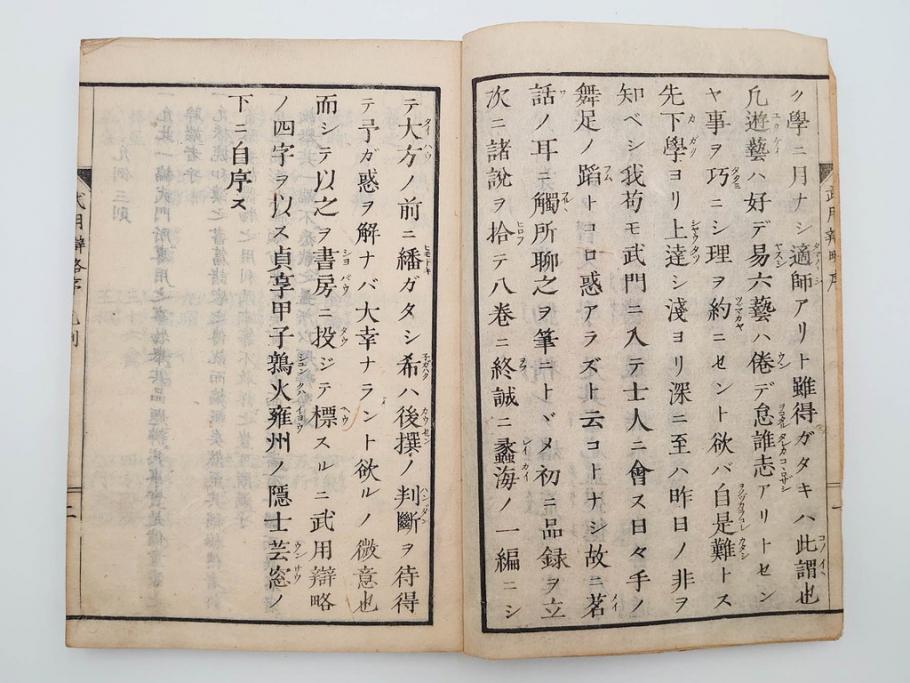 ク學ニ月ナシ適師アリト雖得ガタキハ此謂也
凡遊藝ハ好デ易六藝ハ倦デ怠誰志アリトセン
ヤ事ヲ巧ニシ理ヲ約ニセント欲バ自是難トス
先下學ヨリ上達シ淺ヨリ深ニ至ハ昨日ノ非ヲ
知ベシ我苟モ武門ニ入テ士人ニ會ス日々手ノ
舞足ノ蹈トコロ惑アラズト云コトナシ故ニ茗
話ノ耳ニ觸所聊之ヲ筆ニトヾメ初ニ品録ヲ立
次ニ諸説ヲ拾テ八巻ニ終誠ニ蠡海ノ一編ニシ
テ大方ノ前ニ繙ガタシ希ハ後撰ノ判斷ヲ待得
テ予ガ惑ヲ解ナバ大幸ナラント欲ルノ微意也
而シテ以之ヲ書房ニ投ジテ標スルニ武用辯略
ノ四字ヲ以ス貞享甲子鶉火雍州ノ隱士芸窓ノ
下ニ自序ス
武用辯略序